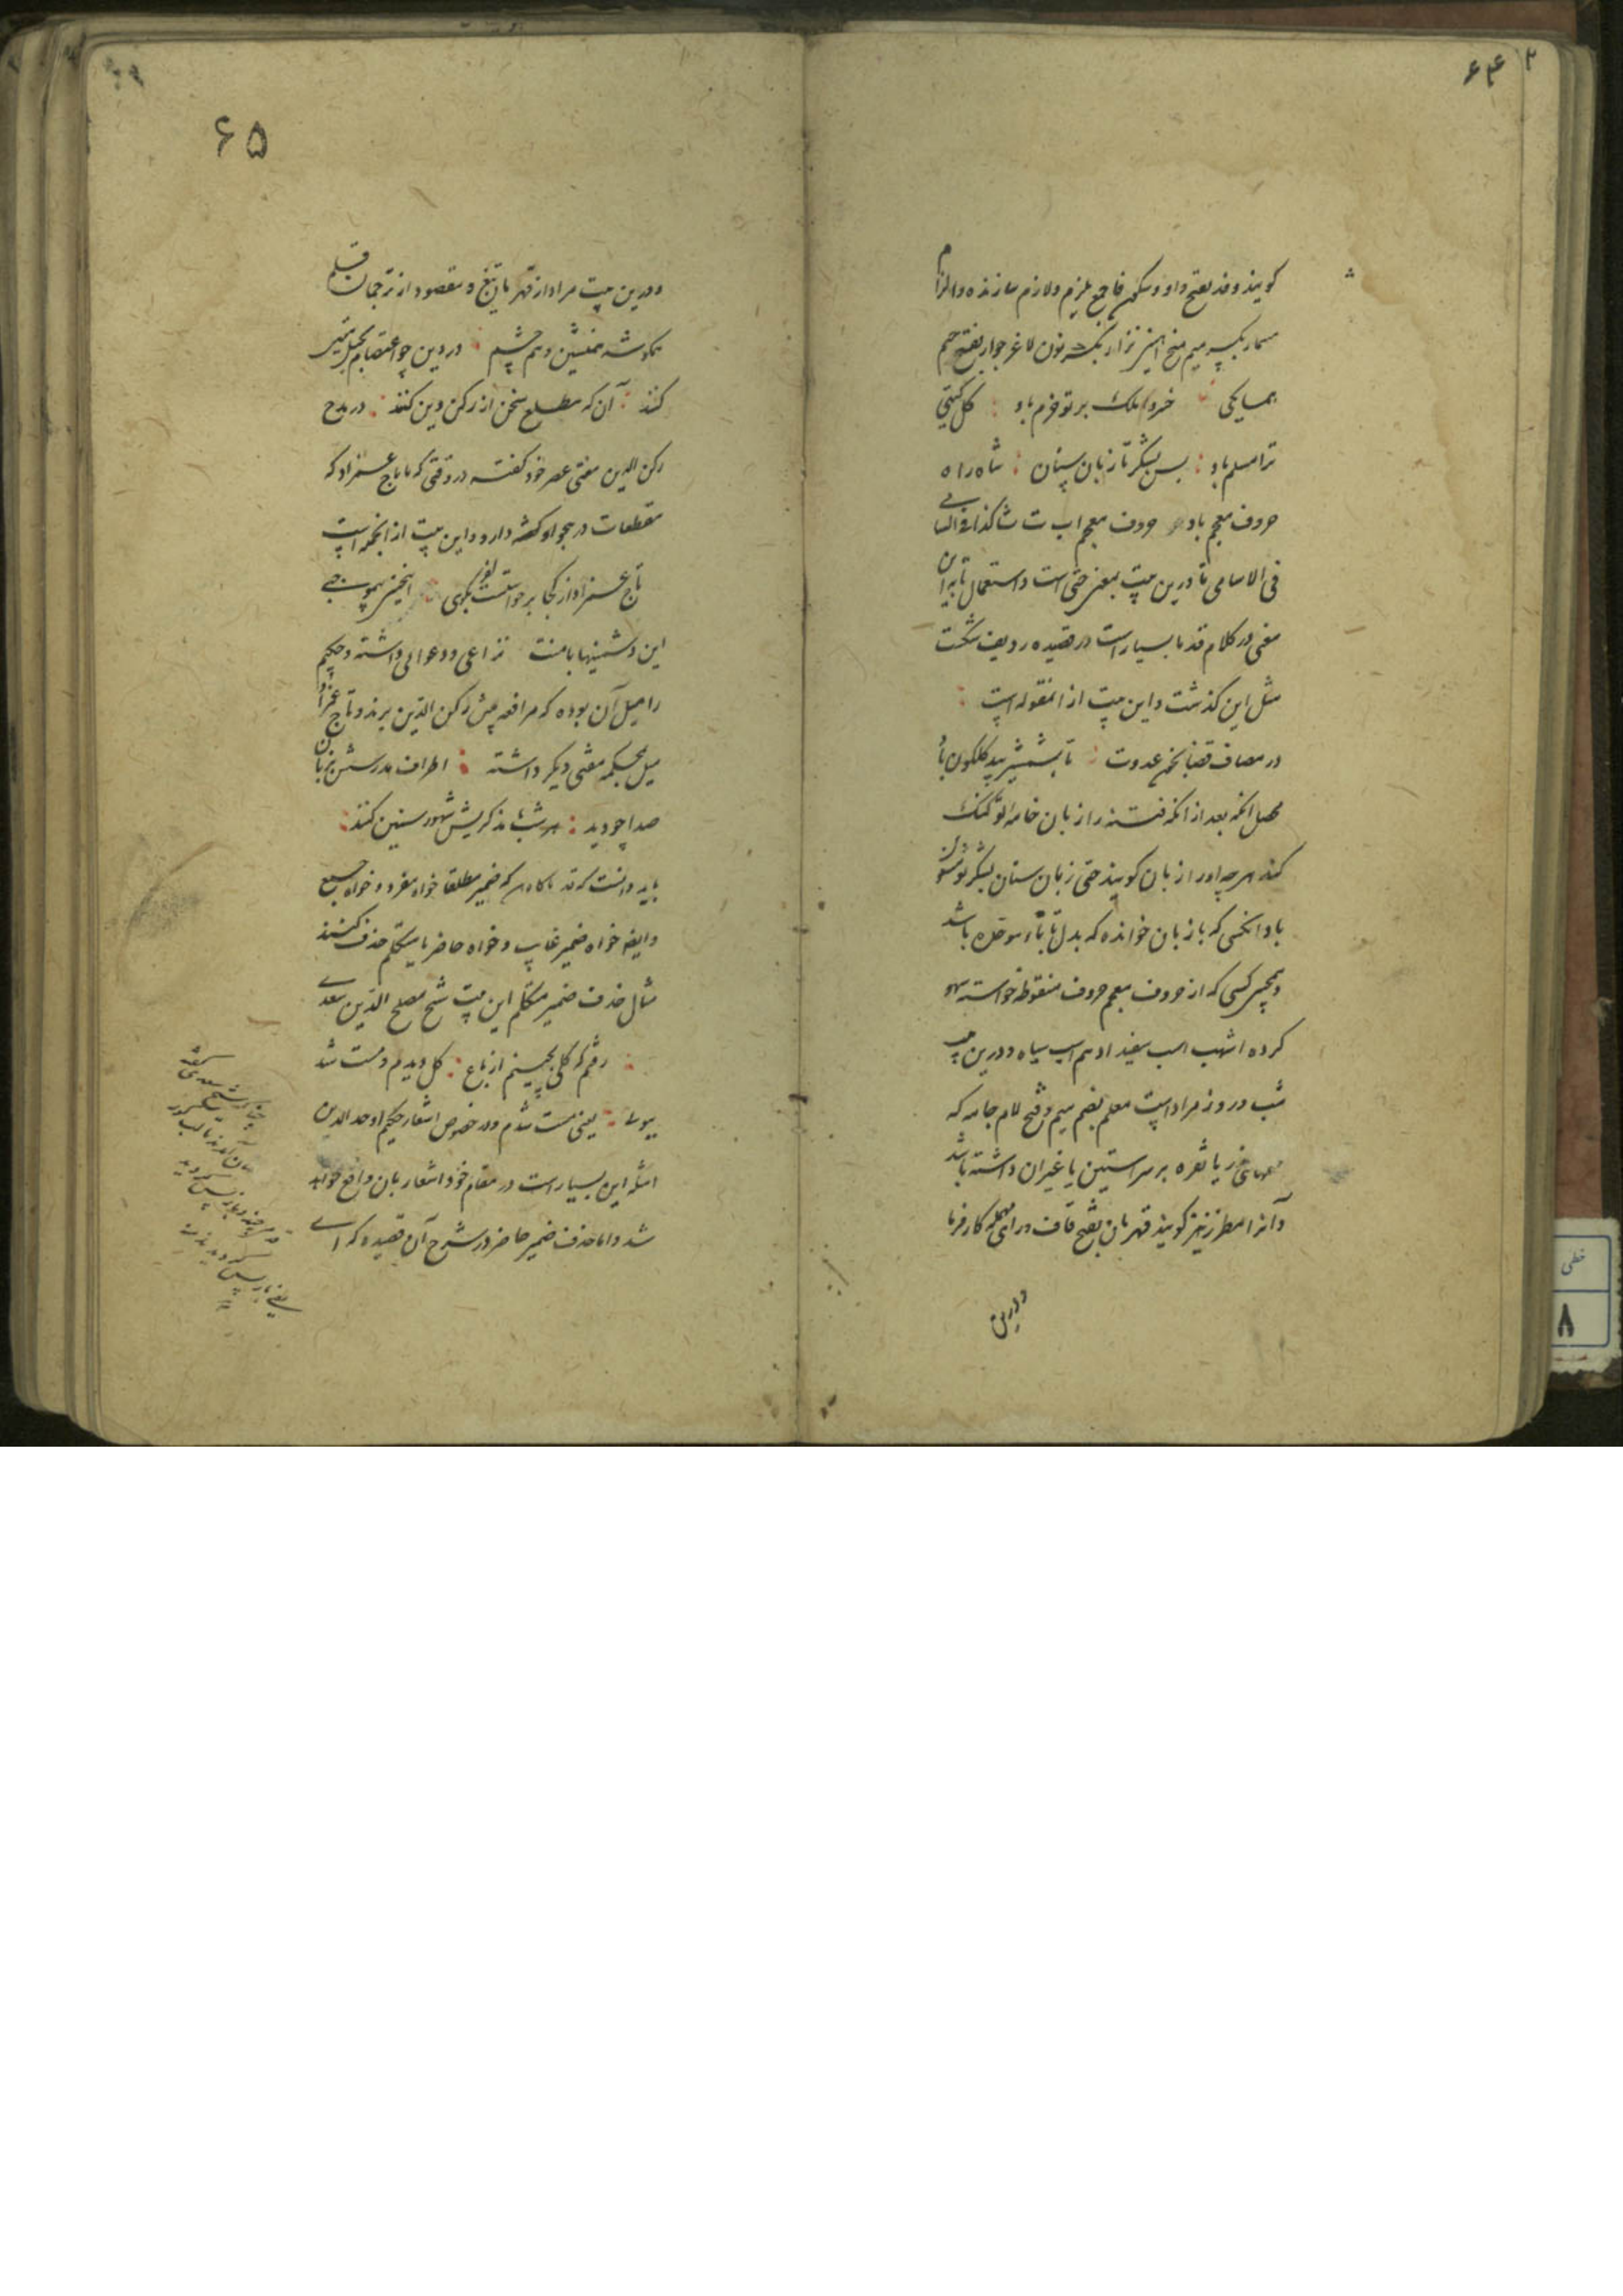 ۶۴
گویند وفد بفتح واو و سکون فا جمع ملزم و لازم سازنده و الزام
مسمار بکسر میم میخ آهنین نزار بکسر نون لاغر جوار بفتح جیم
همسایگی خسروا ملک بر تو خرم باد گل گیتی
ترا مسلم باد بس لشکر تا زبان سنان شاه راه
حروف معجم باد حروف معجم اب ت ث کذا فی السامی
فی الاسامی تا درین بیت بمعنی حتی است و استعمال تا برین
معنی در کلام قدما بسیار است در قصیده ردیف شکست
مثل این گذشت و این بیت از آنمقوله است
در مصاف قضا بخون عدوت تا بشمشیر بید گلگون باد
محصل آنکه بعد از آنکه فتنه را زبان خامه تو گنگ
کند هرچه او را زبان گویند حتی زبان سنان لشکر تو
باد و آنکسی که باز بان خوانده که بدل تا باء موحده باشد
و همچنین کسی که از حروف معجم حروف منقوطه خواسته سهو
کرده اشهب اسب سفید ادهم اسب سیاه و درین بیت
شب و روز مراد است معلم بضم میم و فتح لام جامه که
زر یا نقره بر سر آستین یا غیر آن داشته باشد
و آنرا مطرز نیز گویند قهرمان بفتح قاف و رای مهمله کارفرما
و درین
۶۵
و درین بیت مراد از قهرمان تیغ و مقصود از ترجمان قلم
همگوشه همنشین و هم چشم در دین چو اعتصام بحبل متین
کنند آن که مطلع سخن از رکن دین کنند در مدح
رکن الدین مفتی عصر خود گفته در وقتی که با تاج عمزاد که
مقطعات در هجو او گفته دارد و این بیت از آنجمله است
تاج عمزاد از کجا برخواست بگوی
این دشمنیها با منت نزاعی و دعوائی داشته و حکیم
را میل آن بوده که مرافعه پیش رکن الدین برند و تاج عمزاد
میل بمحکمه مفتی دیگر داشته اطراف مدرستش بزبان
صدا چو دید هر شب مذکریش شهور سنین کنند
باید دانست که قدما گاه که ضمیر مطلقا خواه مفرد و خواه جمع
و ایضا خواه ضمیر غایب و خواه حاضر یا متکلم حذف کنند
مثال حذف ضمیر متکلم این بیت شیخ مصلح الدین سعدی
رفتم که گلی بچینم از باغ گل دیدم و مست شد
ببوئی یعنی مست شدم و در خصوص اشعار حکیم اوحد الدین
امثله این بسیار است در مقام خود اشعار بان واقع خواهد
شد و اما حذف ضمیر حاضر در شرح آن قصیده که ای
خطی
۸